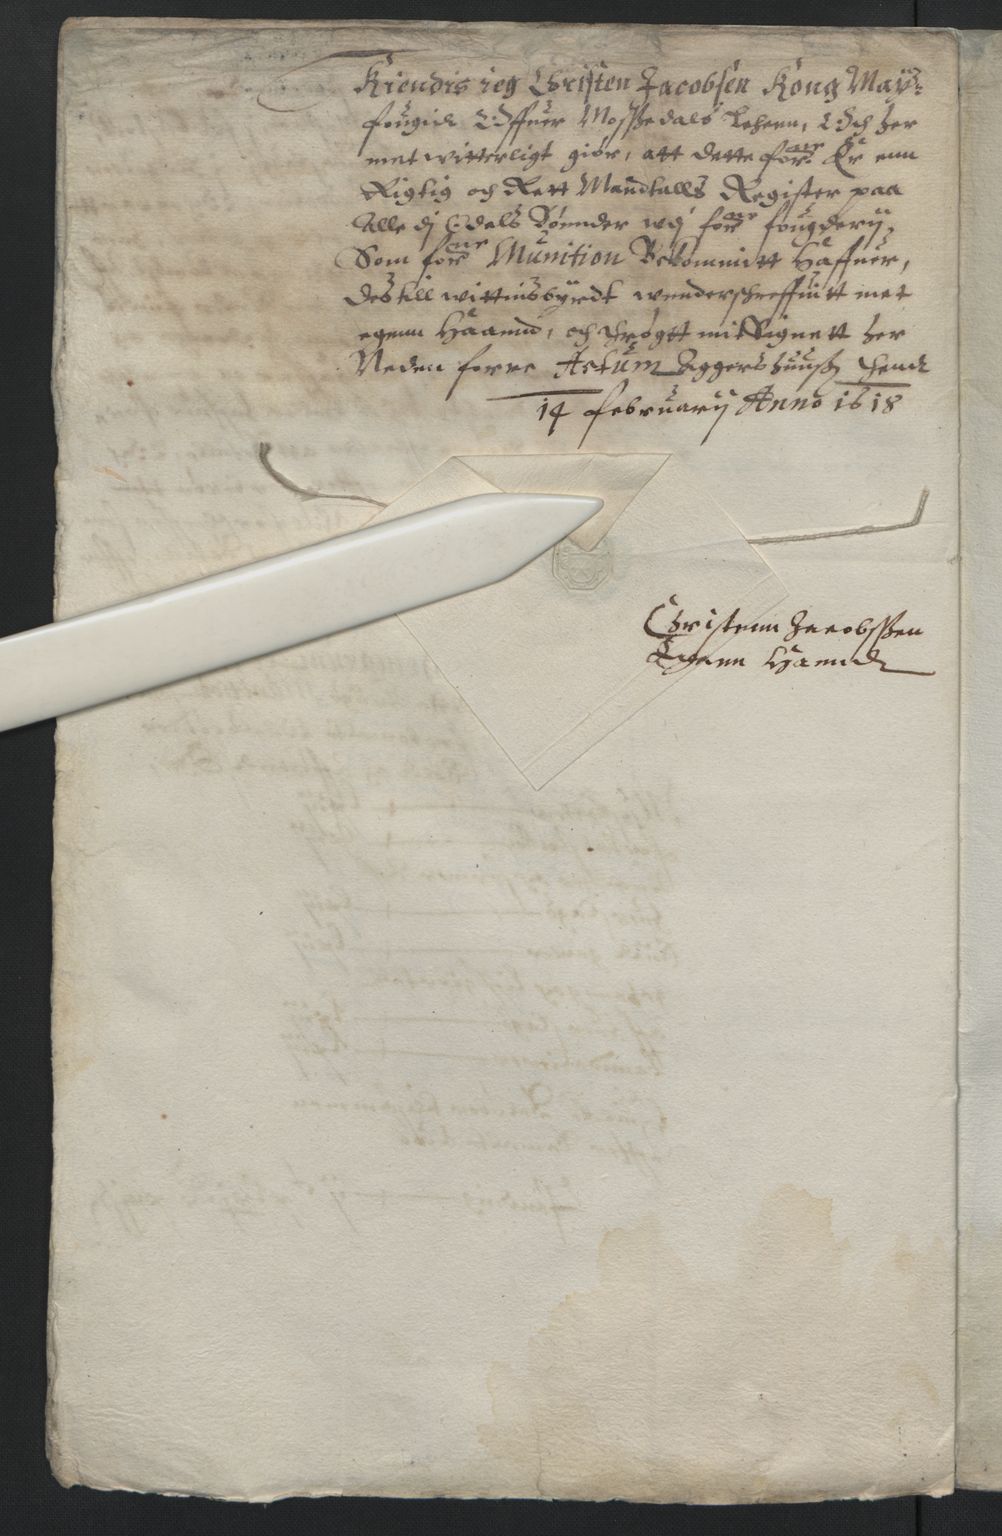 Kiendis ieg Christen Jacobsen Kong May:
fougit Offuer Mossedals Lehenn, Och her
met witterligt giör, att dette forne Er enn
Rigtig och Rett Mandtalls Register paa
Alle di Odels Bønnder wdj forne fougderij,
Som forne Munition Bekommitt Haffuer,
Des till wittnisbyrdt wunderschreffuitt met
egenn Haannd, och thrögtt mit Signett her
Neden forre Actum Aggershuuss thend
14 Februarij Anno 1618
Christenn Jacobssen
Egenn Haand